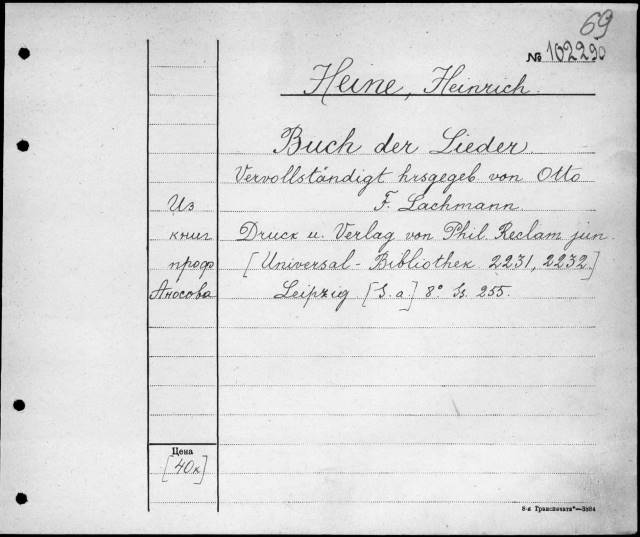 69
№ 102290
Heine, Heinrich.
Buch der Lieder.
Vervollständigt hrsgegeb. von Otto
F. Lachmann.
Druck u. Verlag von Phil. Reclam jun.
[Universal-Bibliothek 2231, 2232.]
Leipzig [S. a.] 8° Ss. 255.
Из
книг
проф
Аносова
Цена
[40к]
8-я Гранспечати"—3884